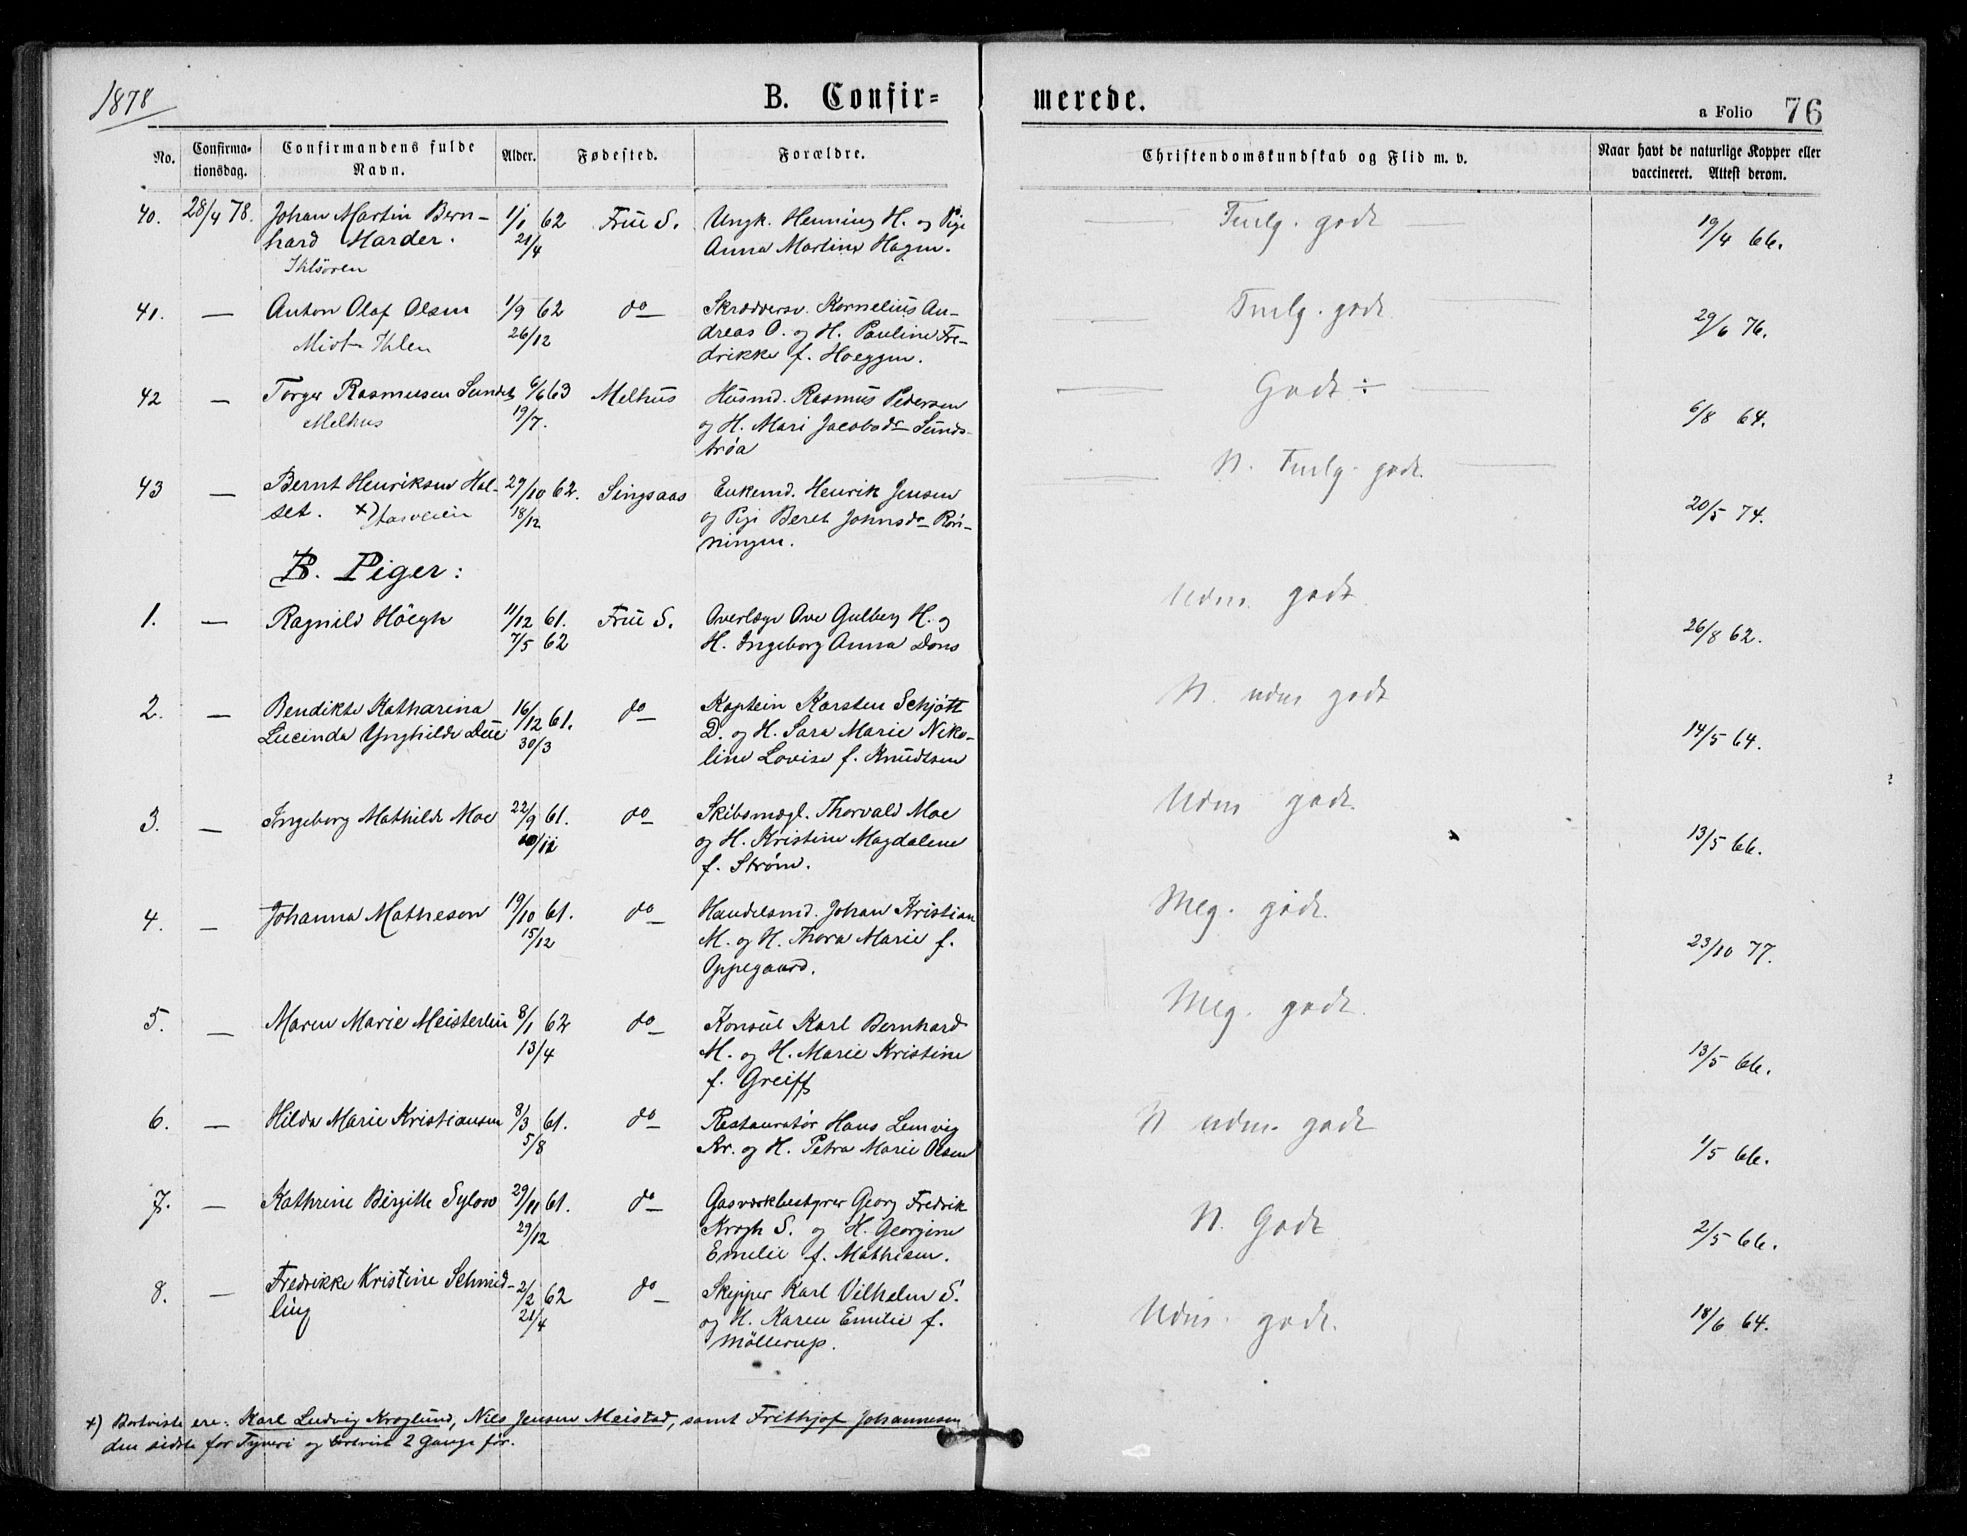 1878
B. Confir=
merede.
a Folio 76
No.
Confirma=
tionsdag.
Confirmandens fulde
Navn.
Alder.
Fødested.
Forældre.
Christendomskundskab og Flid m. v.
Naar havt de naturlige Kopper eller
vaccineret. Attest derom.
40. 28/4 78. Johan Martin Bern- 1/1 62 Frue S. Ungk. Henning H. og Pige Tmlg. godt 19/4 66.
hard Harder. 21/4 Anna Martine Hagen.
Ihlsøren
41. — Anton Olaf Olsen 1/9 62 do Skræddersv. Kornelius An- Tmlg. godt 29/6 76.
Midt-Ihlen 26/12 dreas O. og H. Pauline Fre-
drikke f. Hoeggen.
42 — Torger Rasmusen Sundet 6/6 63 Melhus Husmd. Rasmus Pedersen Godt ÷ 6/8 64.
Melhus 19/7. og H. Mari Jacobsdr Sunds-
trøa
43 — Bernt Henriksen Hal- 29/10 62. Singsaas Enkemd. Henrik Jensen N. Tmlg. godt. 20/5 74.
set. x) 18/12 og Pige Beret Johnsdr Røn-
ningen.
B. Piger:
1. — Ragnild Høegh 11/12 61. Frue S. Overlæge Ove Gulberg H. og Udm. godt 26/8 62.
7/5 62 H. Ingeborg Anna Dons
2. — Bendikte Katharina 16/12 61. do Kaptein Karsten Schjøtt N. udm godt 14/5 64.
Lucinda Ynghilde Due 30/3 D. og H. Sara Marie Niko-
line Lovise f. Knudtsen
3. — Ingeborg Mathilde Moe 22/9 61. do Skibsmægl. Thorvald Moe Udm godt. 13/5 66.
10/11 og H. Kristine Magdalene
f. Strøm.
4. — Johanna Matheson 19/10 61. do Handelsmd. Johan Kristian Meg. godt. 23/10 77.
15/12 M. og H. Thora Marie f.
Oppegaard.
5. — Maren Marie Meisterlin 8/1 62 do Konsul Karl Bernhard Meg. godt. 13/5 66.
13/4 M. og H. Marie Kristine
f. Greiff
6. — Hilda Marie Kristiansen 8/3 61. do Restauratør Hans Lemvig N udm. godt 1/5 66.
5/8 Kr. og H. Petra Marie Olsen
7. — Kathrine Birgitte Sylow 29/11 61. do Gasværkbestyrer Georg Fredrik N. Godt 2/5 66.
29/12 Krogh S. og H. Georgine
Emelie f. Mathisen.
8. — Fredrikke Kristine Schmid- 2/2 62 do Skipper Karl Vilhelm S. Udm. godt. 18/6 64.
ling 21/4 og H. Karen Emilie f.
Møllerup.
x) Bortviste ere: Karl Ludvig Kroglund, Nils Jensen Meistad, samt Frithjof Johannesen
den sidste for Tyveri og bortvist 2 Gange før.